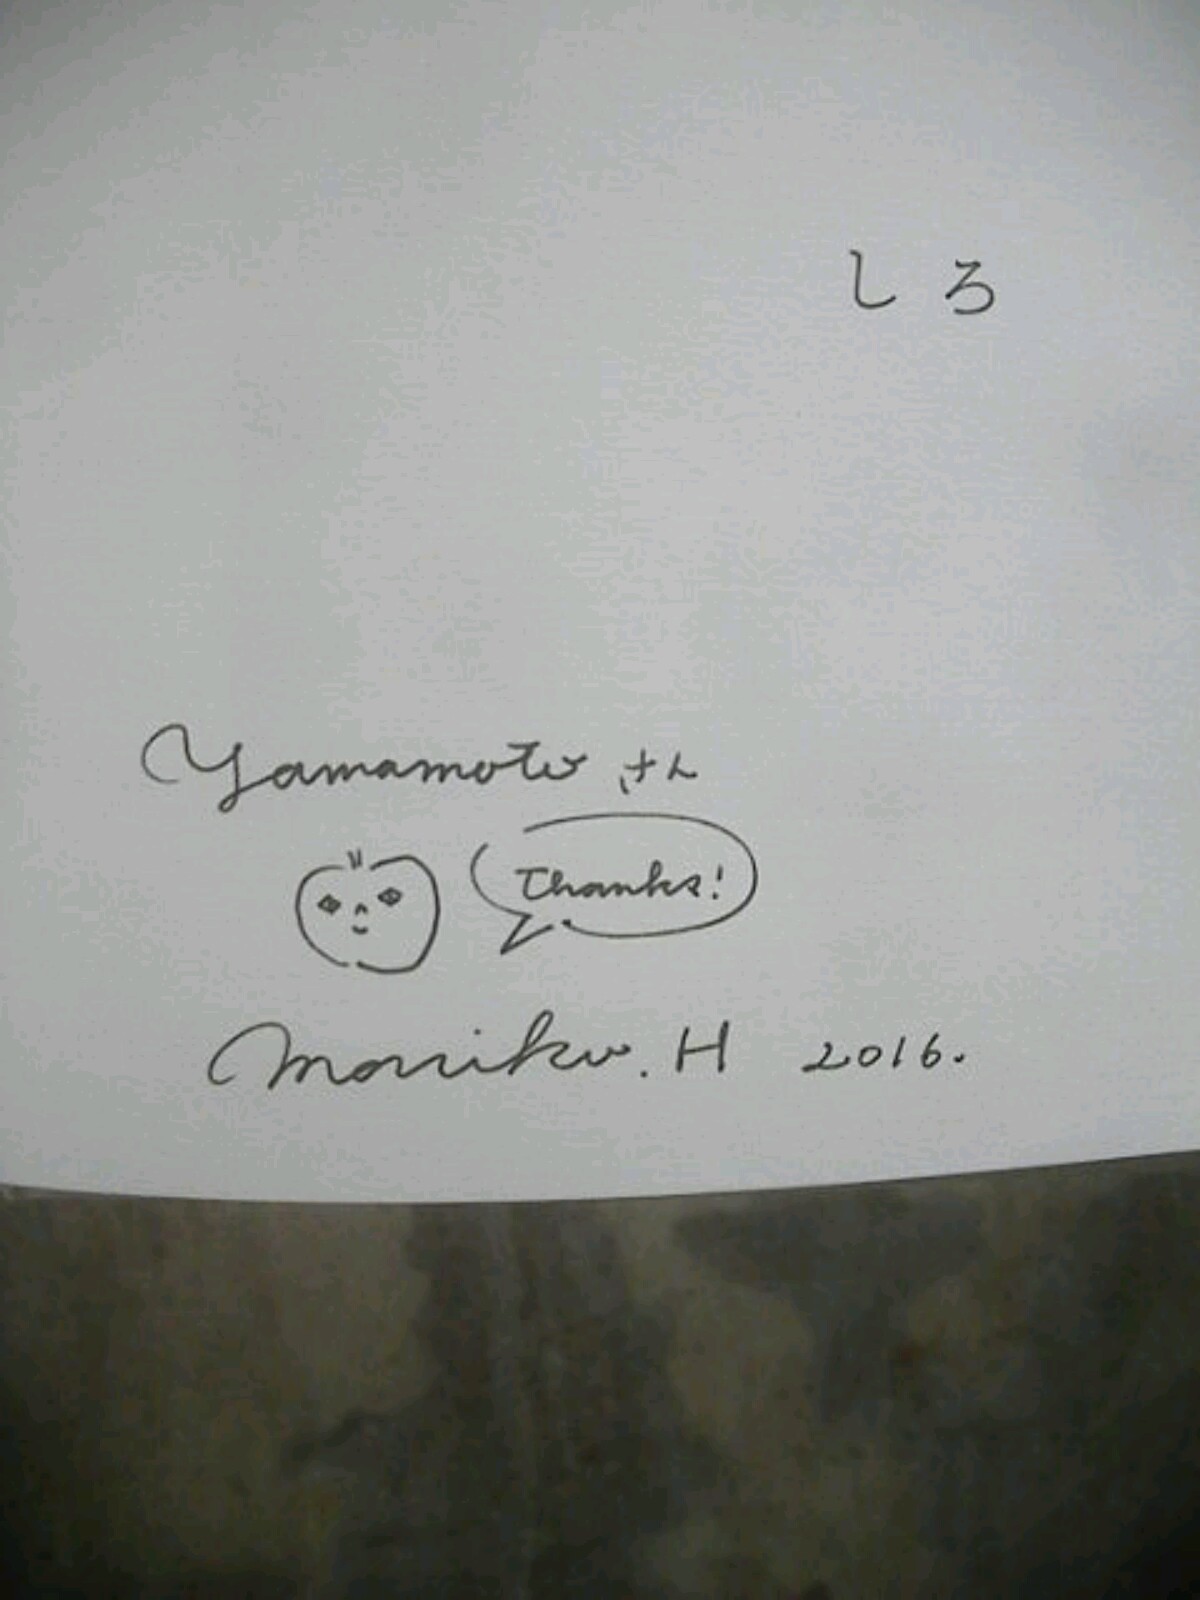 しろ
Yamamoto さん
Thanks!
Moriko. H 2016.